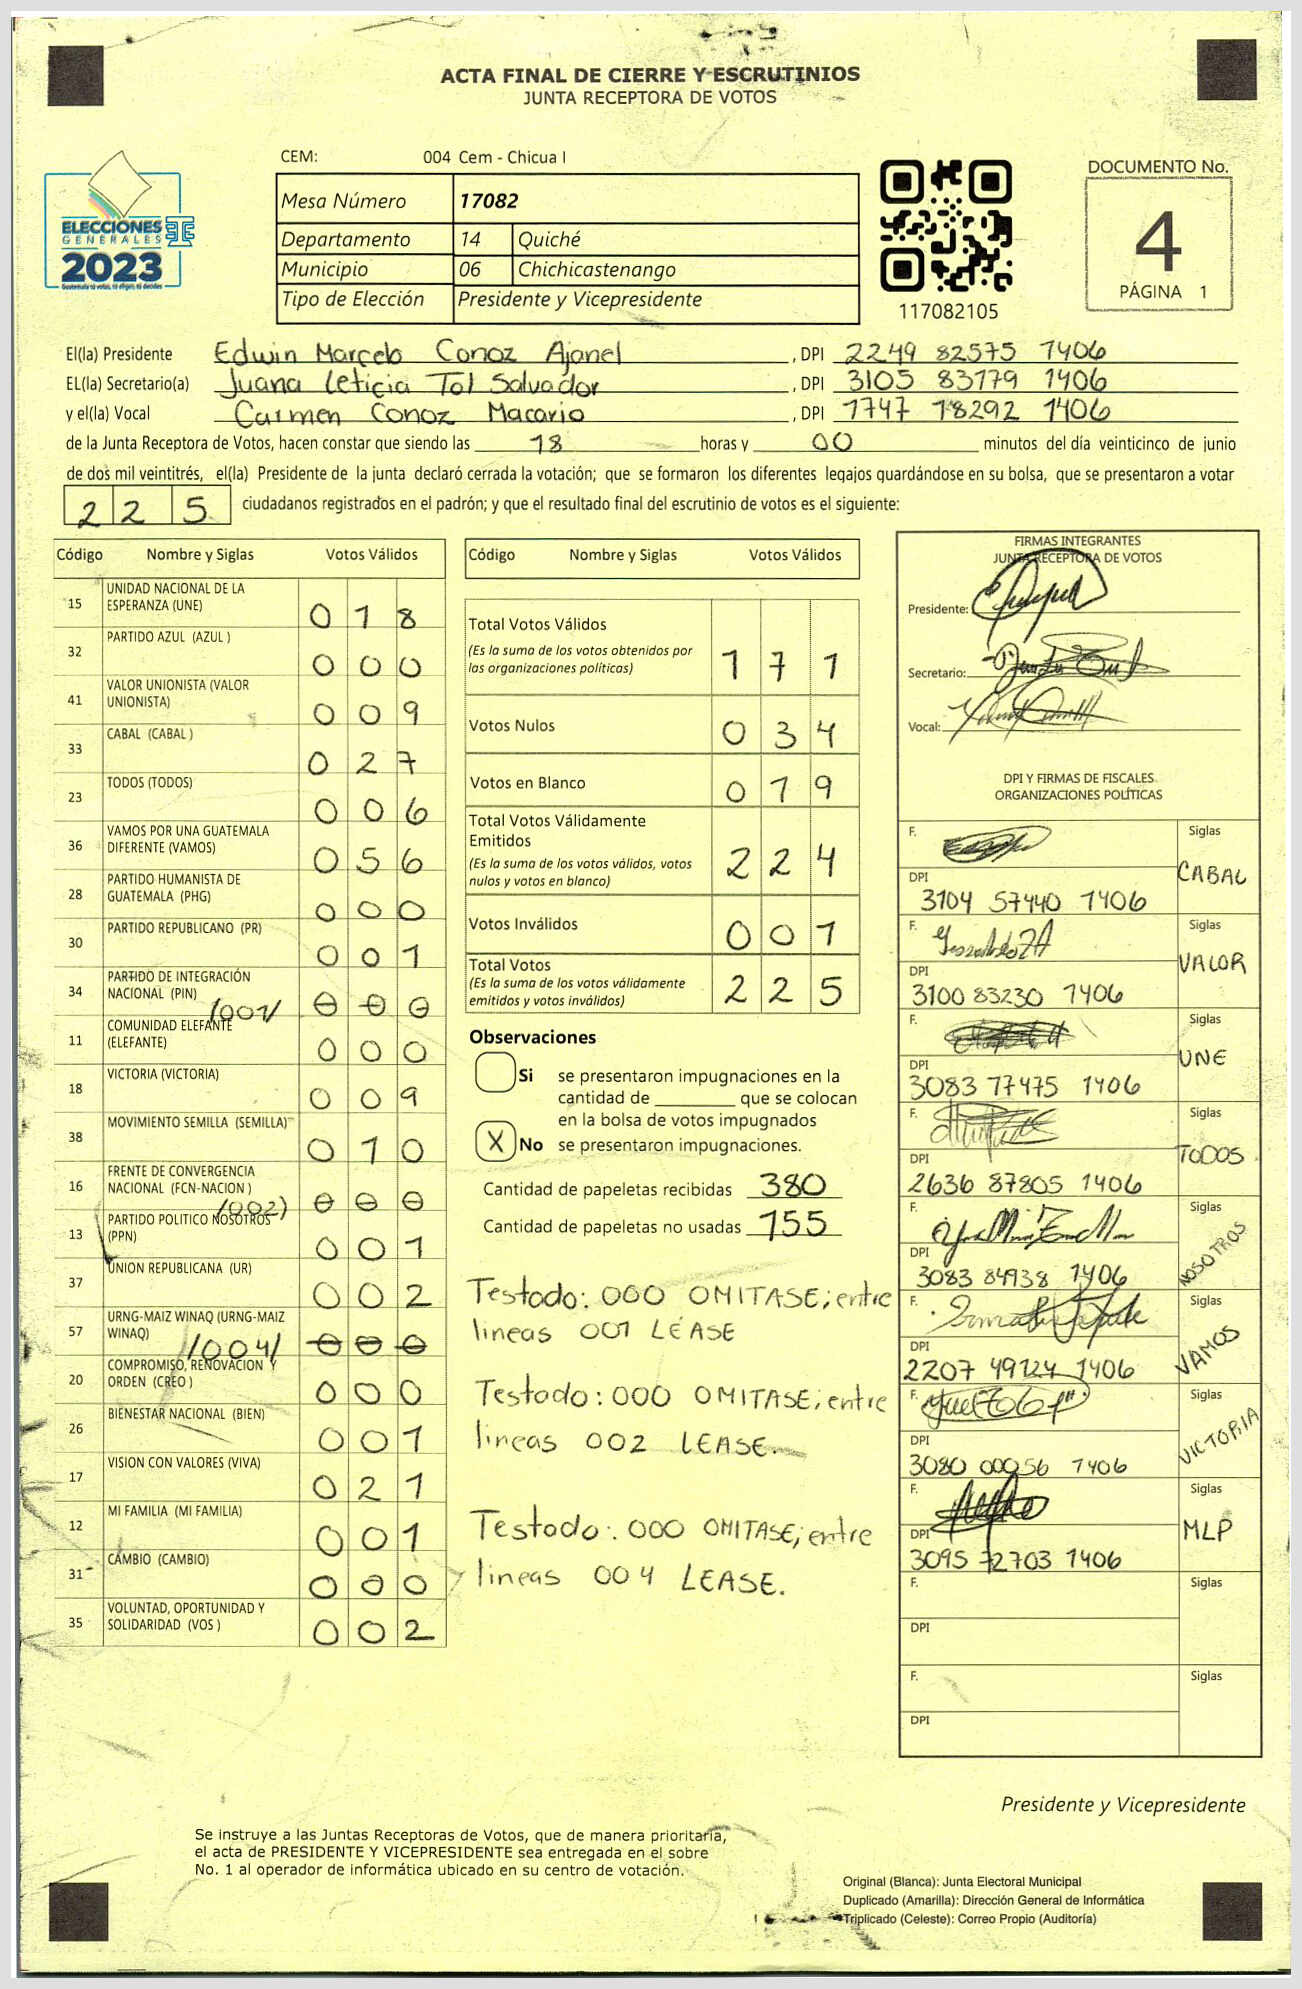 ACTA FINAL DE CIERRE Y ESCRUTINIOS
JUNTA RECEPTORA DE VOTOS
CEM: 004 Cem - Chicua I
Mesa Número 17082
Departamento 14 Quiché
Municipio 06 Chichicastenango
Tipo de Elección Presidente y Vicepresidente
ELECCIONES
GENERALES
2023
Guatemala tú votas, tú eliges, tú decides
117082105
DOCUMENTO No.
4
PÁGINA 1
El(la) Presidente Edwin Marcelo Conoz Ajanel , DPI 2249 82575 1406
EL(la) Secretario(a) Juana Leticia Tol Salvador , DPI 3105 83179 1406
y el(la) Vocal Carmen Conoz Macario , DPI 1747 18292 1406
de la Junta Receptora de Votos, hacen constar que siendo las 18 horas y 00 minutos del día veinticinco de junio
de dos mil veintitrés, el(la) Presidente de la junta declaró cerrada la votación; que se formaron los diferentes legajos guardándose en su bolsa, que se presentaron a votar
225 ciudadanos registrados en el padrón; y que el resultado final del escrutinio de votos es el siguiente:
Código Nombre y Siglas Votos Válidos
15 UNIDAD NACIONAL DE LA
ESPERANZA (UNE) 018
32 PARTIDO AZUL (AZUL ) 000
41 VALOR UNIONISTA (VALOR
UNIONISTA) 009
33 CABAL (CABAL ) 027
23 TODOS (TODOS) 006
36 VAMOS POR UNA GUATEMALA
DIFERENTE (VAMOS) 056
28 PARTIDO HUMANISTA DE
GUATEMALA (PHG) 000
30 PARTIDO REPUBLICANO (PR) 001
34 PARTIDO DE INTEGRACIÓN
NACIONAL (PIN) /001/ 000
11 COMUNIDAD ELEFANTE
(ELEFANTE) 000
18 VICTORIA (VICTORIA) 009
38 MOVIMIENTO SEMILLA (SEMILLA) 010
16 FRENTE DE CONVERGENCIA
NACIONAL (FCN-NACION ) /002/ 000
13 PARTIDO POLITICO NOSOTROS
(PPN) 001
37 UNION REPUBLICANA (UR) 002
57 URNG-MAIZ WINAQ (URNG-MAIZ
WINAQ) /004/ 000
20 COMPROMISO, RENOVACION Y
ORDEN (CREO ) 000
26 BIENESTAR NACIONAL (BIEN) 001
17 VISION CON VALORES (VIVA) 021
12 MI FAMILIA (MI FAMILIA) 001
31 CAMBIO (CAMBIO) 000
35 VOLUNTAD, OPORTUNIDAD Y
SOLIDARIDAD (VOS ) 002
Código Nombre y Siglas Votos Válidos
Total Votos Válidos
(Es la suma de los votos obtenidos por
las organizaciones políticas) 171
Votos Nulos 034
Votos en Blanco 019
Total Votos Válidamente
Emitidos
(Es la suma de los votos válidos, votos
nulos y votos en blanco) 224
Votos Inválidos 001
Total Votos
(Es la suma de los votos válidamente
emitidos y votos inválidos) 225
Observaciones
Si se presentaron impugnaciones en la
cantidad de ________ que se colocan
en la bolsa de votos impugnados
X No se presentaron impugnaciones.
Cantidad de papeletas recibidas 380
Cantidad de papeletas no usadas 155
Testado: 000 OMITASE; entre
lineas 001 LÉASE
Testado: 000 OMITASE; entre
lineas 002 LEASE.
Testado: 000 OMITASE; entre
lineas 004 LEASE.
FIRMAS INTEGRANTES
JUNTA RECEPTORA DE VOTOS
Presidente:
Secretario:
Vocal:
DPI Y FIRMAS DE FISCALES
ORGANIZACIONES POLÍTICAS
F. Siglas
CABAL
DPI
3104 57440 1406
F. Siglas
VALOR
DPI
3100 83230 1406
F. Siglas
UNE
DPI
3083 77475 1406
F. Siglas
TODOS
DPI
2636 87805 1406
F. Siglas
NOSOTROS
DPI
3083 84938 1406
F. Siglas
VAMOS
DPI
2207 49124 1406
F. Siglas
VICTORIA
DPI
3080 00056 1406
F. Siglas
MLP
DPI
3095 72703 1406
F. Siglas
DPI
F. Siglas
DPI
Presidente y Vicepresidente
Se instruye a las Juntas Receptoras de Votos, que de manera prioritaria,
el acta de PRESIDENTE Y VICEPRESIDENTE sea entregada en el sobre
No. 1 al operador de informática ubicado en su centro de votación.
Original (Blanca): Junta Electoral Municipal
Duplicado (Amarilla): Dirección General de Informática
Triplicado (Celeste): Correo Propio (Auditoría)